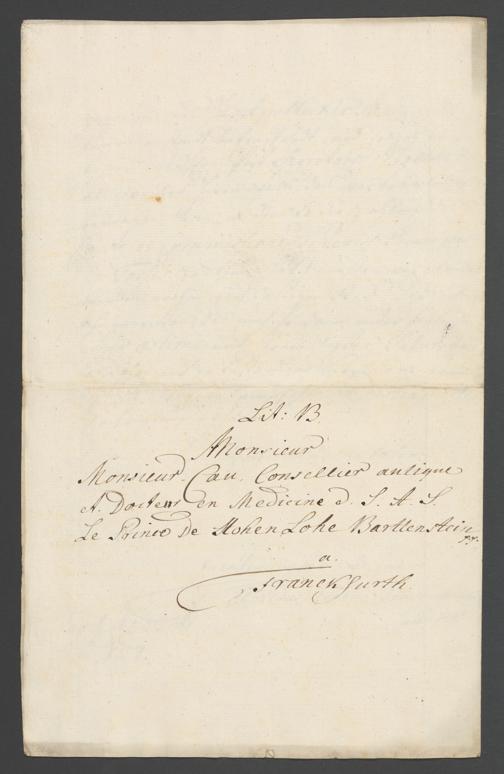 Lit: B
Monsieur
Monsieur Cau. Consellier aulique
et Docteur en Medicine d. S. A. S.
Le Prince De Hohen Lohe Bartlenstein
a.
Franckfurth.